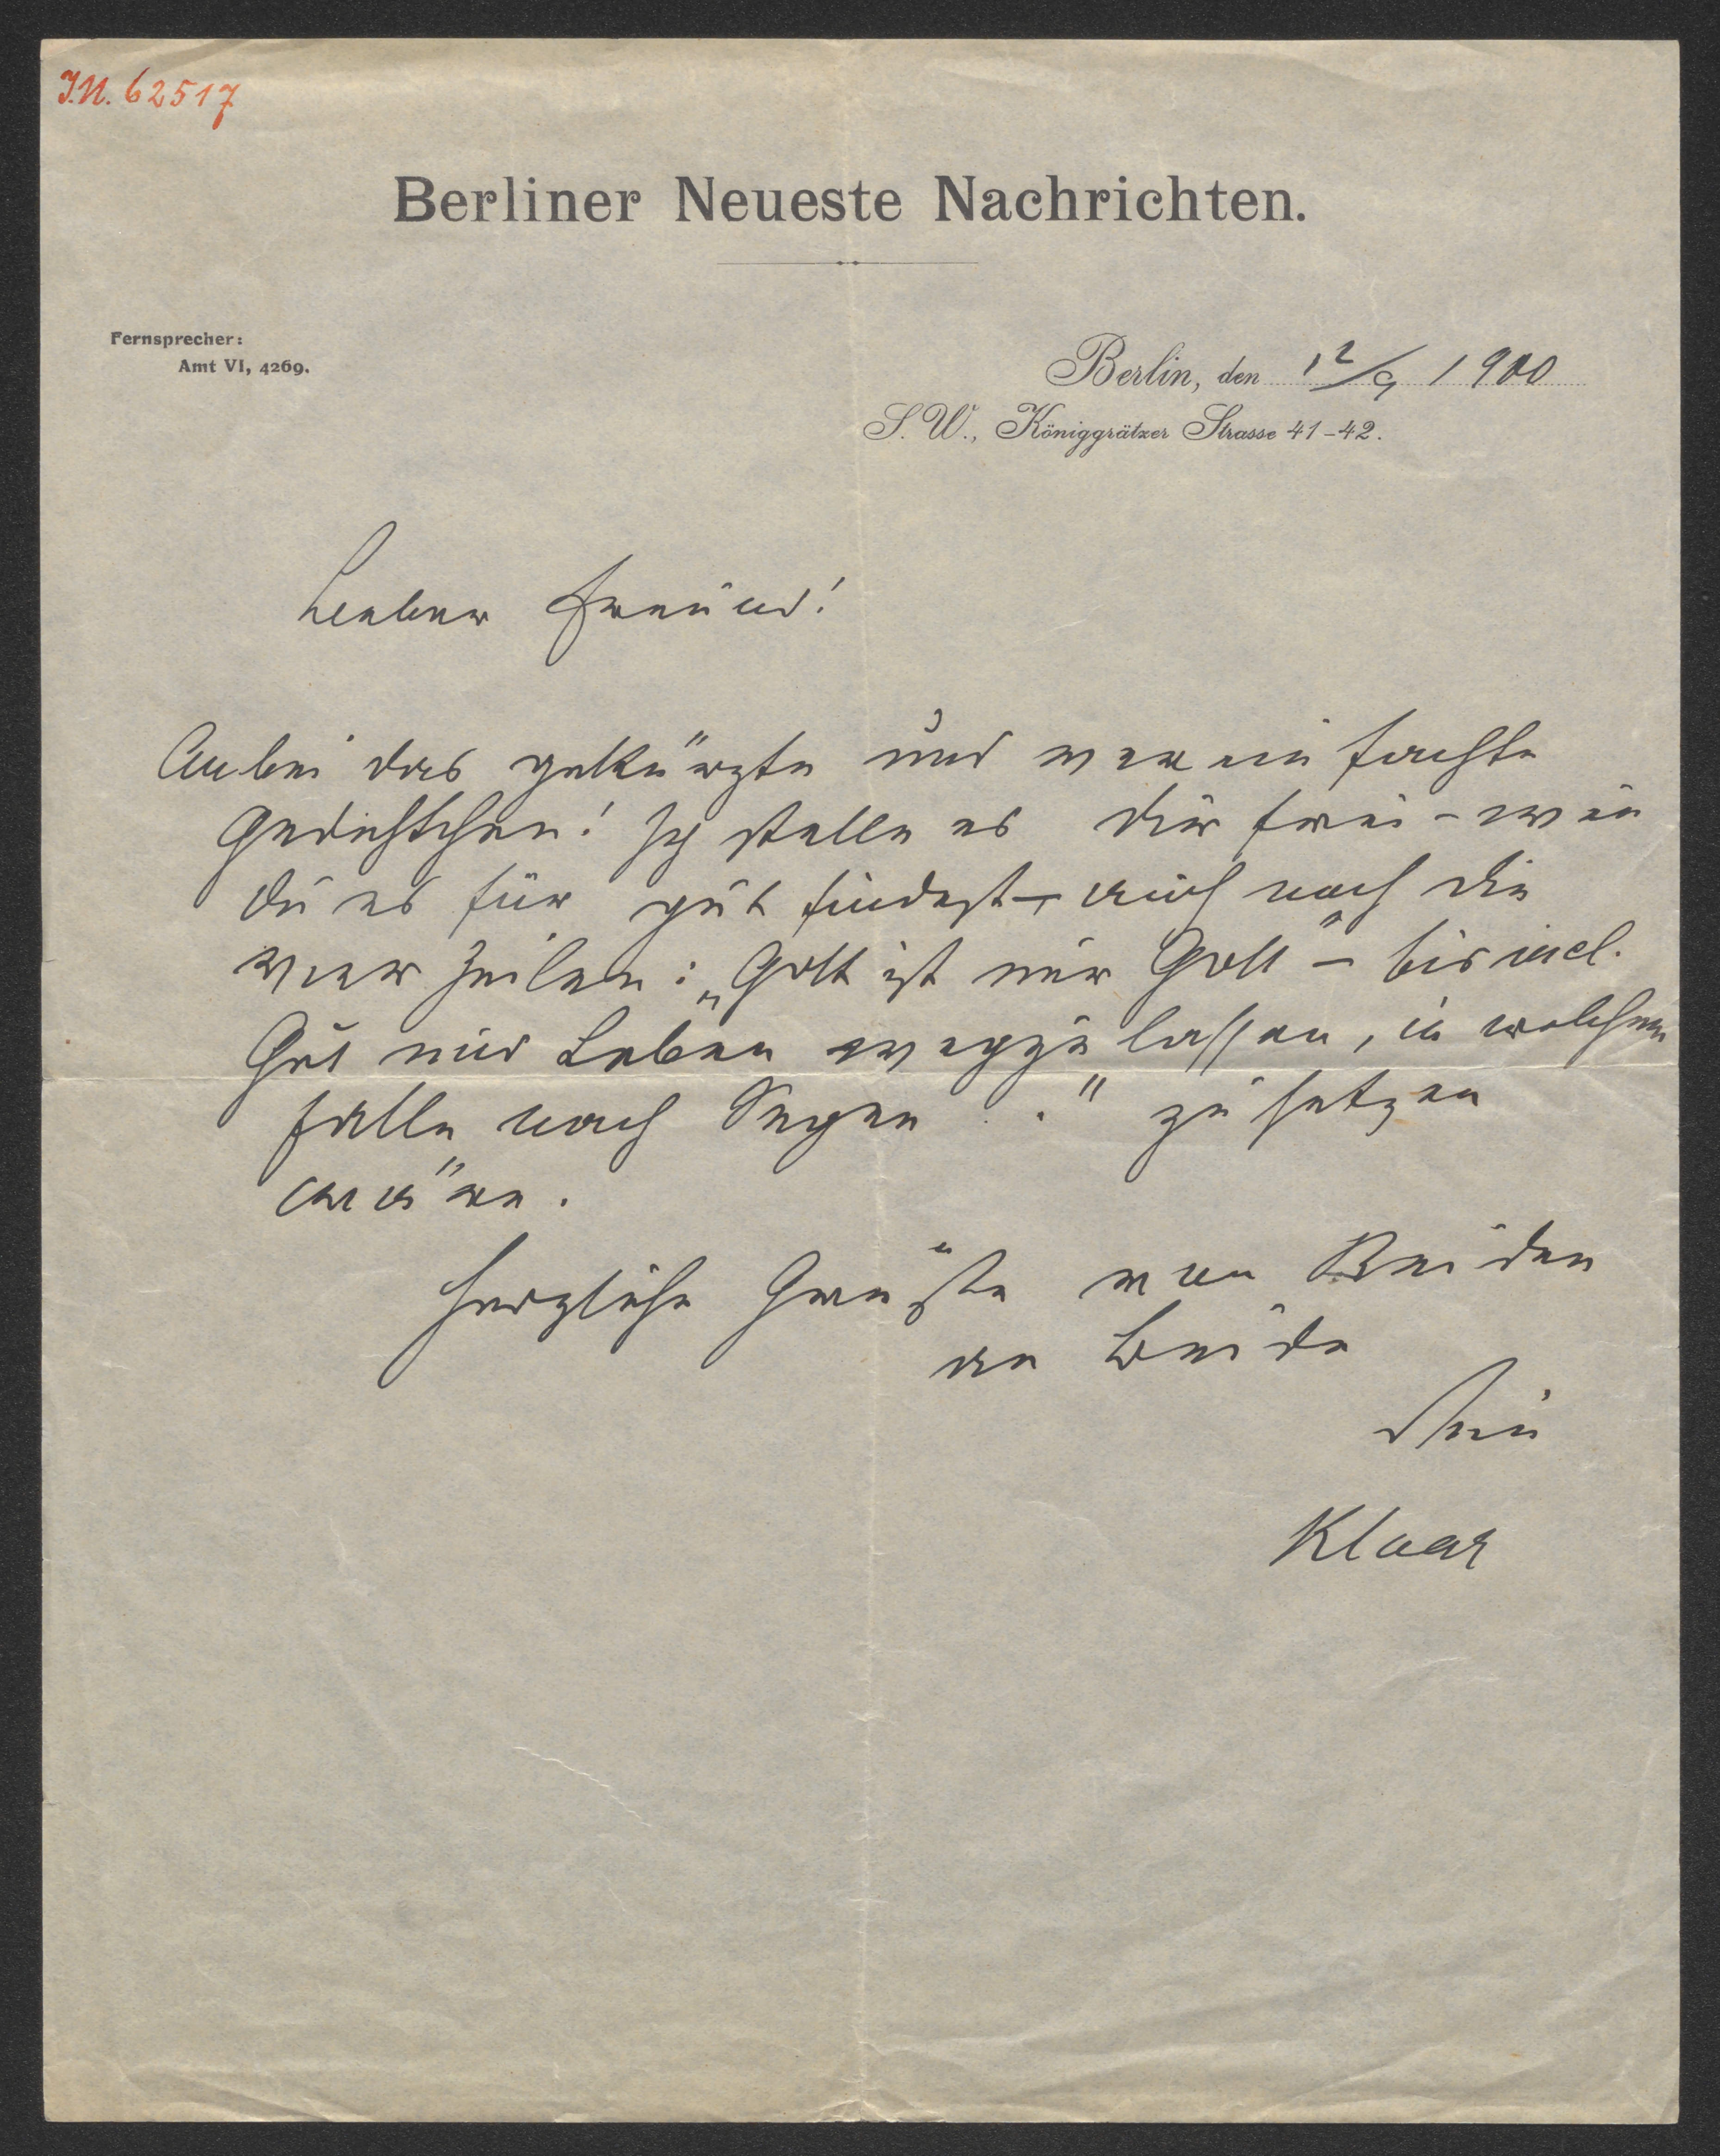 I.N. 62517
Berliner Neueste Nachrichten.
Fernsprecher:
Amt VI, 4269.
Berlin, den 12/9 1900
S. W., Königgrätzer Strasse 41-42.
Lieber Freund!
Anbei das gekürzte und vereinfachte
Gedichtchen! Ich stelle es dir frei – wen
du es für gut findest – auch noch die
vier Zeilen: „Gott ist nur Gott" – bis incl.
Gut und Leben wegzulassen, in welchem
Falle nach Segen . ." zu setzen
wäre.
Herzliche Grüße von Beiden
an Beide
Dein
Klaar